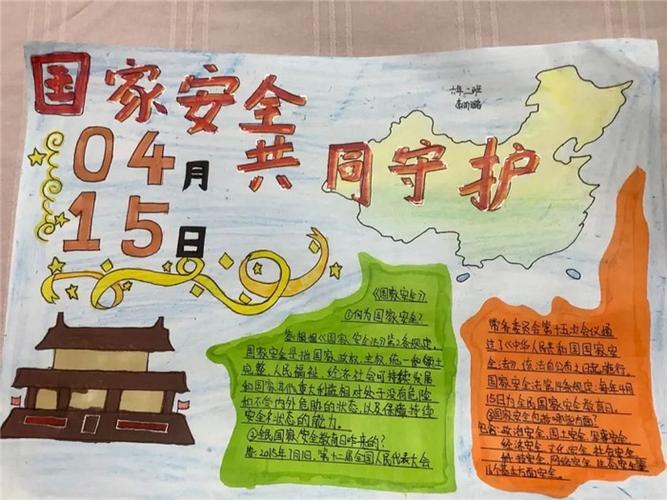 国家安全
共同守护
04月
15日
六年二班
《国家安全》
①何为国家安全?
答:根据《国家安全法》第2条规定,
国家安全是指国家政权、主权、统一和领土
完整、人民福祉、经济社会可持续发展
和国家其他重大利益相对处于没有危险
和不受内外危胁的状态,以及保障持续
安全状态的能力。
②全民国家安全教育日咋来的?
答:2015年7月1日,第十二届全国人民代表大会
常务委员会第十五次会议通
过了《中华人民共和国国家安
全法》,该法自公布之日起施行。
国家安全法第14条规定:每年4月
15日为全民国家安全教育日。
③国家安全包括哪些方面?
包含:政治安全、国土安全、军事安全
经济安全、文化安全、社会安全
科技安全、网络安全、生态安全等
16个基本方面安全。